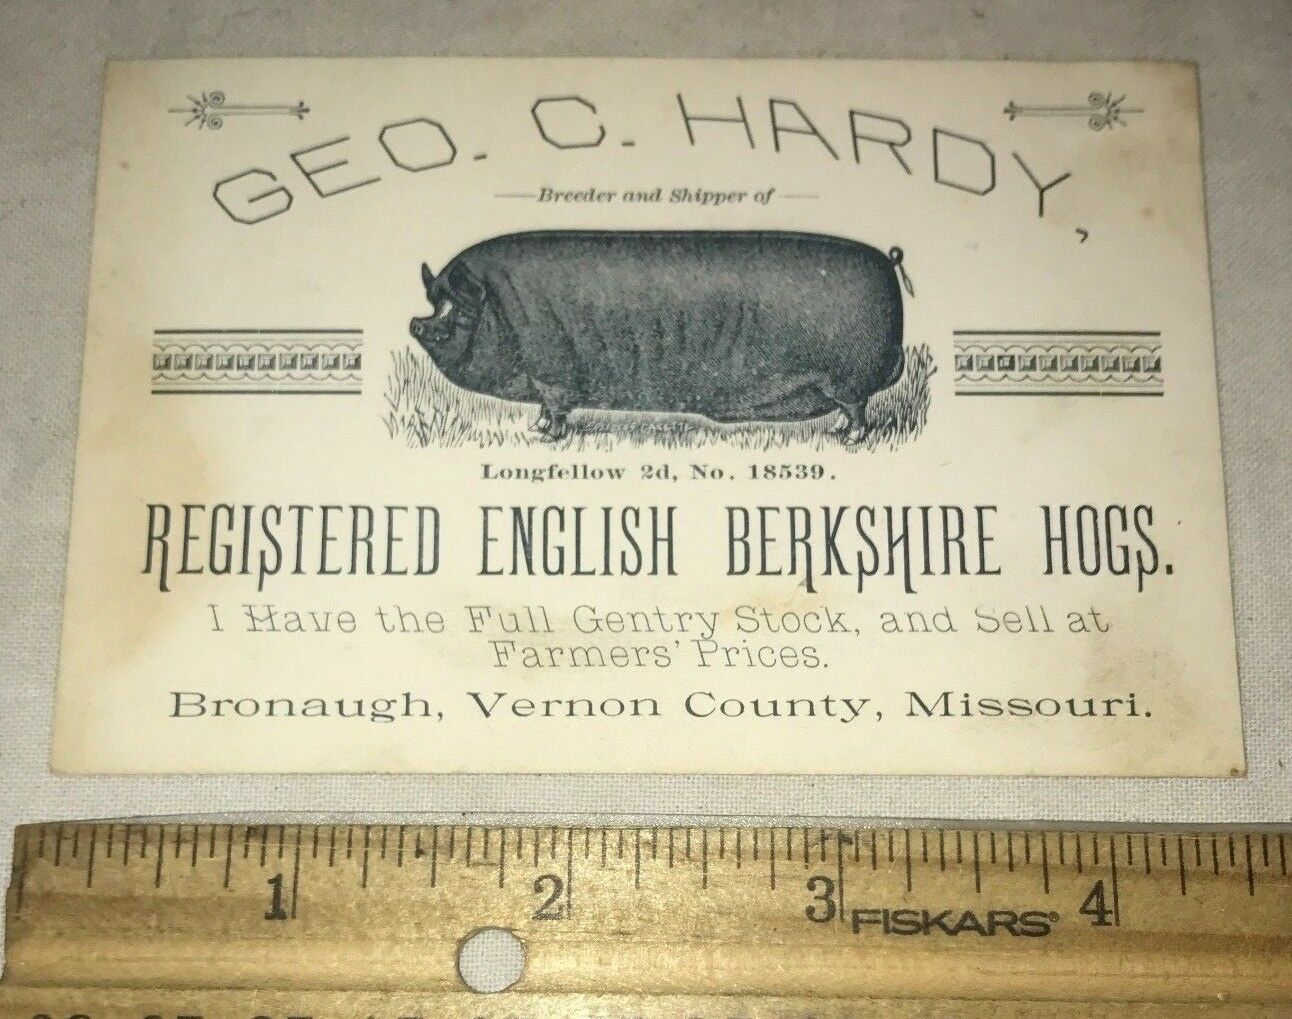 GEO. C. HARDY,
Breeder and Shipper of
Longfellow 2d, No. 18539.
REGISTERED ENGLISH BERKSHIRE HOGS.
I Have the Full Gentry Stock, and Sell at
Farmers' Prices.
Bronaugh, Vernon County, Missouri.
1 2 3 FISKARS® 4